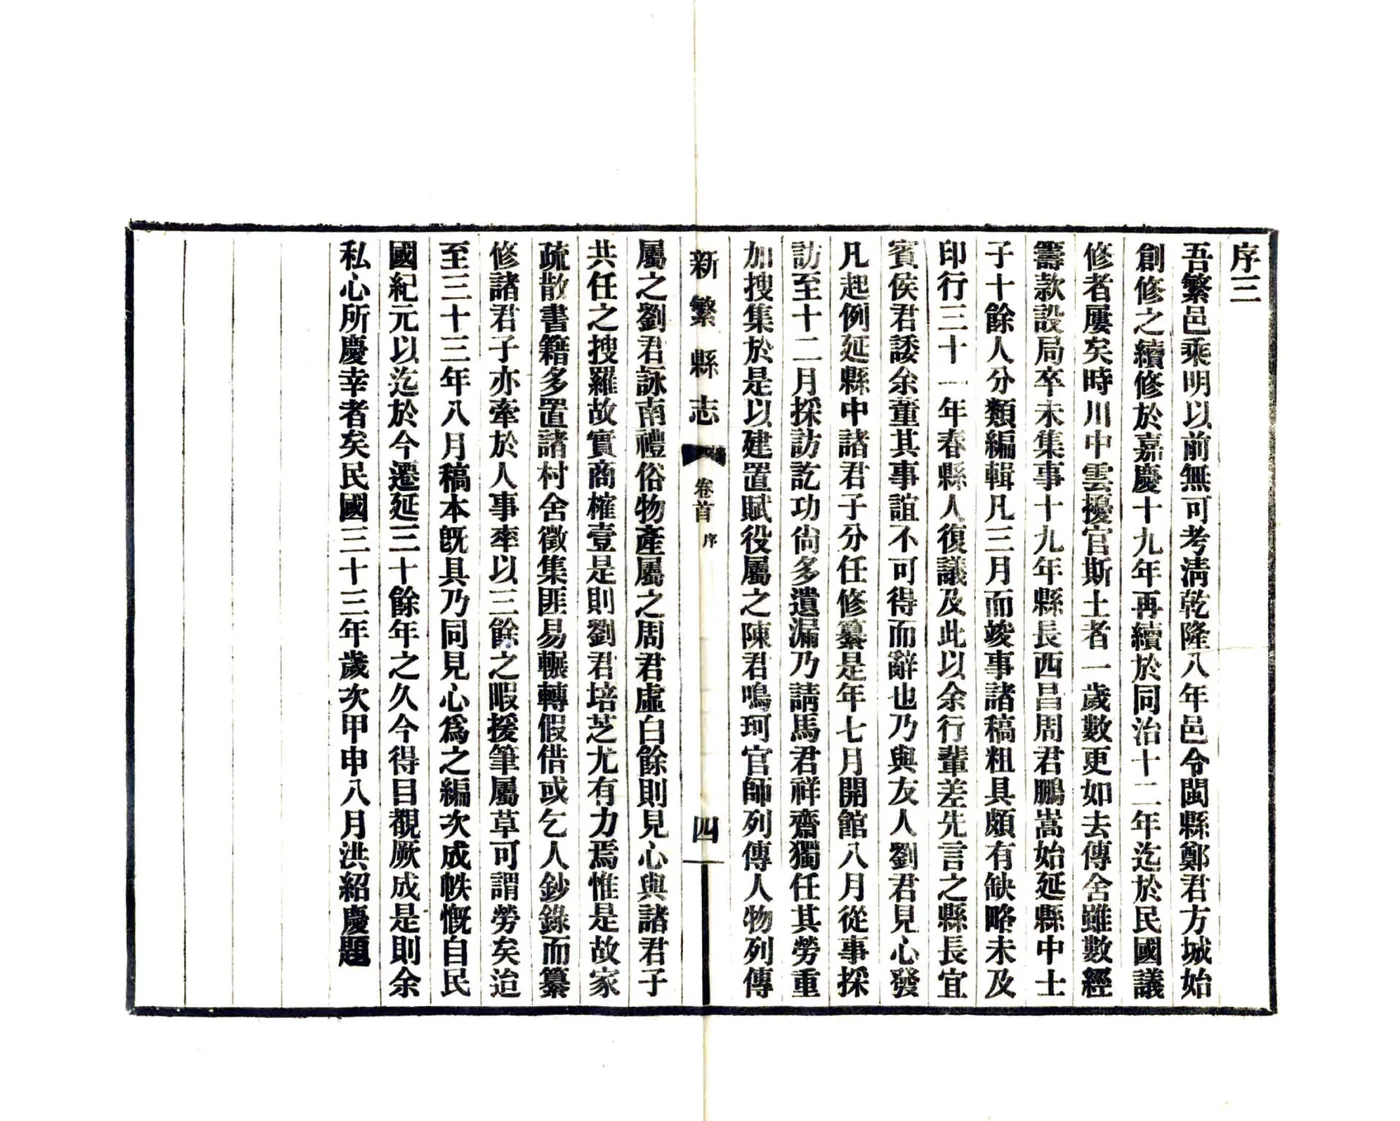 序三
吾繁邑乘明以前無可考淸乾隆八年邑令閩縣鄭君方城始
創修之續修於嘉慶十九年再續於同治十二年迄於民國議
修者屢矣時川中雲擾官斯土者一歲數更如去傳舍雖數經
籌款設局卒未集事十九年縣長西昌周君鵬嵩始延縣中士
子十餘人分類編輯凡三月而竣事諸稿粗具頗有缺略未及
印行三十一年春縣人復議及此以余行輩差先言之縣長宜
賓侯君諉余董其事誼不可得而辭也乃與友人劉君見心發
凡起例延縣中諸君子分任修纂是年七月開館八月從事採
訪至十二月採訪訖功尙多遺漏乃請馬君祥齋獨任其勞重
加搜集於是以建置賦役屬之陳君鳴珂官師列傳人物列傳
新繁縣志
卷首
序
四
屬之劉君詠南禮俗物產屬之周君虛白餘則見心與諸君子
共任之搜羅故實商榷壹是則劉君培芝尤有力焉惟是故家
疏散書籍多置諸村舍徵集匪易輾轉假借或乞人鈔錄而纂
修諸君子亦牽於人事率以三餘之暇援筆屬草可謂勞矣迨
至三十三年八月稿本旣具乃同見心爲之編次成帙慨自民
國紀元以迄於今遷延三十餘年之久今得目覩厥成是則余
私心所慶幸者矣民國三十三年歲次甲申八月洪紹慶題